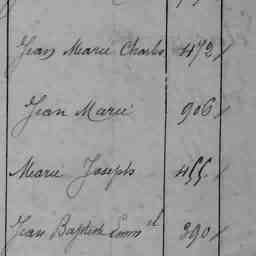 Jean Marie Charles 472/
Jean Marie 906/
Marie Joseph 455/
Jean Baptiste Emm^el 390/